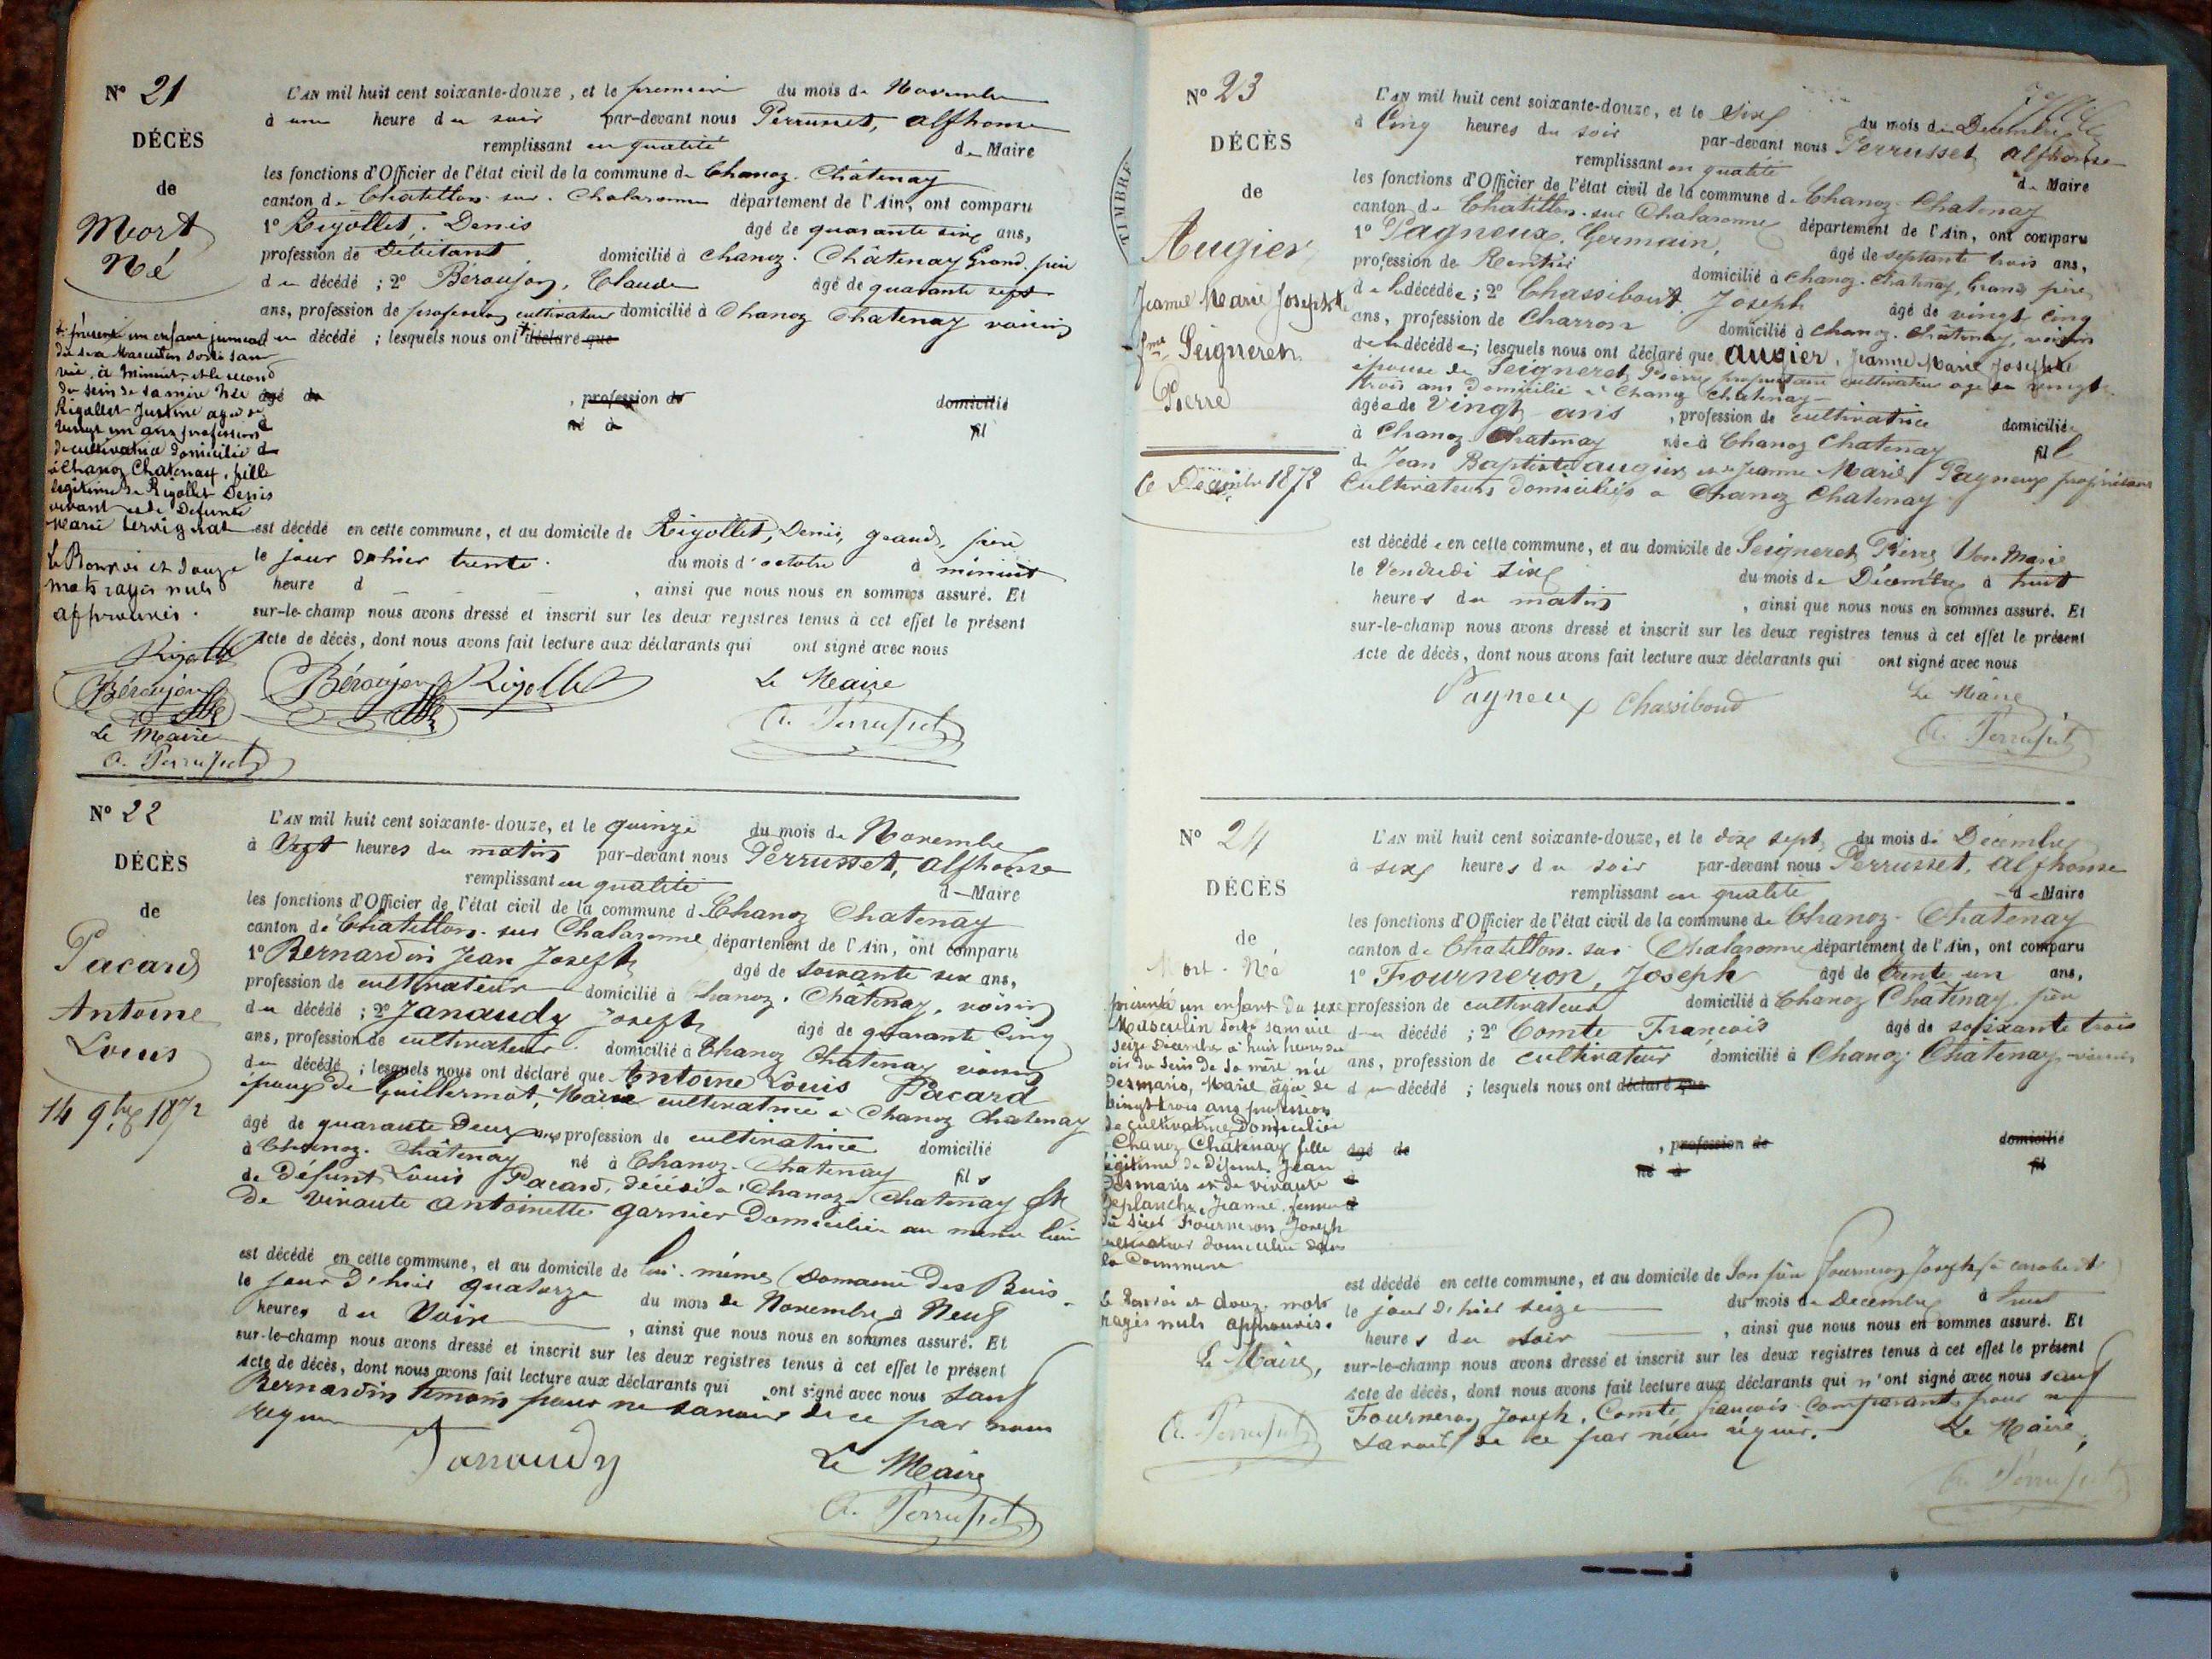 N° 21
DÉCÈS
de
Mort
Né
L'AN mil huit cent soixante-douze, et le premier du mois de Novembre
à une heure du soir par-devant nous Perrusset, Alphonse
remplissant en qualité de Maire
les fonctions d'Officier de l'état civil de la commune de Chanoz-Châtenay
canton de Chatillon-sur-Chalaronne département de l'Ain, ont comparu
1° Rigollet, Denis âgé de quarante six ans,
profession de Debitant domicilié à Chanoz-Châtenay Grand-père
du décédé ; 2° Béroujon, Claude âgé de quarante sept
ans, profession de profession cultivateur domicilié à Chanoz Chatenay voisin
du décédé ; lesquels nous ont déclaré que
âgé de , profession de domicilié
né à fil
présenté un enfant jumeau
du sexe Masculin sorti sans
vie, à minuit, et le second
du sein de sa mère née
Rigollet Justine agée de
vingt un ans profession
de cultivatrice domicilié
à Chanoz Chatenay, fille
légitime de Rigollet Denis
vivant et de Defunte
Marie
Le Renvoi et douze
mots rayés nuls
approuvés.
Rigollet
Béroujon
Le Maire
A. Perrusset
est décédé en cette commune, et au domicile de Rigollet, Denis, grand-père
le jour d'hier trente du mois d'octobre à minuit
heure d , ainsi que nous nous en sommes assuré. Et
sur-le-champ nous avons dressé et inscrit sur les deux registres tenus à cet effet le présent
Acte de décès, dont nous avons fait lecture aux déclarants qui ont signé avec nous
Béroujon Rigollet Le Maire
A. Perrusset
N° 22
DÉCÈS
de
Pacard
Antoine
Louis
14 9bre 1872
L'AN mil huit cent soixante-douze, et le quinze du mois de Novembre
à Sept heures du matin par-devant nous Perrusset, Alphonse
remplissant en qualité d Maire
les fonctions d'Officier de l'état civil de la commune de Chanoz Chatenay
canton de Chatillon-sur Chalaronne département de l'Ain, ont comparu
1° Bernardin Jean Joseph âgé de soixante six ans,
profession de cultivateur domicilié à Chanoz-Châtenay, voisin
du décédé ; 2° Janaudy Joseph âgé de quarante cinq
ans, profession de cultivateur domicilié à Chanoz Chatenay voisin
du décédé ; lesquels nous ont déclaré que Antoine Louis Pacard
époux de Guillermot, Marie cultivatrice à Chanoz Chatenay
âgé de quarante deux ans profession de cultivatrice domicilié
à Chanoz-Châtenay né à Chanoz-Chatenay fils
de Défunt Louis Pacard, décédé à Chanoz-Chatenay et
de vivante Antoinette Garnier Domiciliée au même lieu
est décédé en cette commune, et au domicile de lui-même (Domaine des Buis
le jour d'hier quatorze du mois de Novembre à Neuf
heures du Soir , ainsi que nous nous en sommes assuré. Et
sur-le-champ nous avons dressé et inscrit sur les deux registres tenus à cet effet le présent
Acte de décès, dont nous avons fait lecture aux déclarants qui ont signé avec nous sauf
Bernardin témoin pour ne savoir de ce par nous
requis
Janaudy Le Maire
A. Perrusset
TIMBRE
N° 23
DÉCÈS
de
Augier
Jeanne Marie Josephte
fme Seigneret
Pierre
6 Décembre 1872
L'AN mil huit cent soixante-douze, et le Six du mois de Décembre
à Cinq heures du soir par-devant nous Perrusset Alphonse
remplissant en qualité de Maire
les fonctions d'Officier de l'état civil de la commune de Chanoz-Chatenay
canton de Chatillon-sur Chalaronne département de l'Ain, ont comparu
1° Pagneux, Germain, âgé de septante trois ans,
profession de Rentier domicilié à Chanoz-Chatenay, Grand père
de la décédée ; 2° Chassibout Joseph âgé de vingt cinq
ans, profession de Charron domicilié à Chanoz-Châtenay, voisin
de la décédée ; lesquels nous ont déclaré que Augier, Jeanne Marie Josephte
épouse de Seigneret Pierre propriétaire cultivateur agé de vingt
trois ans domicilié à Chanoz Chatenay
âgée de Vingt ans , profession de cultivatrice domiciliée
à Chanoz Chatenay née à Chanoz Chatenay fille
de Jean Baptiste Augier et de Jeanne Marie Pagneux propriétaires
Cultivateurs domiciliés à Chanoz Chatenay
est décédée en cette commune, et au domicile de Seigneret Pierre Son Marie
le Vendredi six du mois de Décembre à huit
heures du matin , ainsi que nous nous en sommes assuré. Et
sur-le-champ nous avons dressé et inscrit sur les deux registres tenus à cet effet le présent
Acte de décès, dont nous avons fait lecture aux déclarants qui ont signé avec nous
Pagneux Chassiboud Le Maire
A. Perrusset
N° 24
DÉCÈS
de
Mort-Né
L'AN mil huit cent soixante-douze, et le dix sept du mois de Décembre
à six heures du soir par-devant nous Perrusset, Alphonse
remplissant en qualité de Maire
les fonctions d'Officier de l'état civil de la commune de Chanoz-Chatenay
canton de Châtillon-sur-Chalaronne département de l'Ain, ont comparu
1° Fourneron, Joseph âgé de trente un ans,
profession de cultivateur domicilié à Chanoz Châtenay, père
du décédé ; 2° Comte François âgé de soixante trois
ans, profession de cultivateur domicilié à Chanoz-Châtenay-voisin
du décédé ; lesquels nous ont déclaré que
âgé de , profession de domicilié
né à fil
présenté un enfant du sexe
Masculin sorti sans vie
seize Décembre à huit heures du
soir du sein de sa mère née
Desmaris, Marie âgée de
vingt-trois ans profession
de cultivatrice Domiciliée
Chanoz Châtenay fille
légitime de Défunt Jean
Desmaris et de vivante
Deplanche, Jeanne, femme
du sieur Fourneron Joseph
cultivateur domicilié dans
la Commune
Le Renvoi et douze mots
rayés nuls approuvés.
Le Maire,
A. Perrusset
est décédé en cette commune, et au domicile de Son père Fourneron Joseph
le jour d'hier seize du mois de Decembre à huit
heures du soir , ainsi que nous nous en sommes assuré. Et
sur-le-champ nous avons dressé et inscrit sur les deux registres tenus à cet effet le présent
Acte de décès, dont nous avons fait lecture aux déclarants qui n'ont signé avec nous sauf
Fourneron Joseph, Comte françois comparants pour ne
savoir de ce par nous réquis. Le Maire,
A. Perrusset